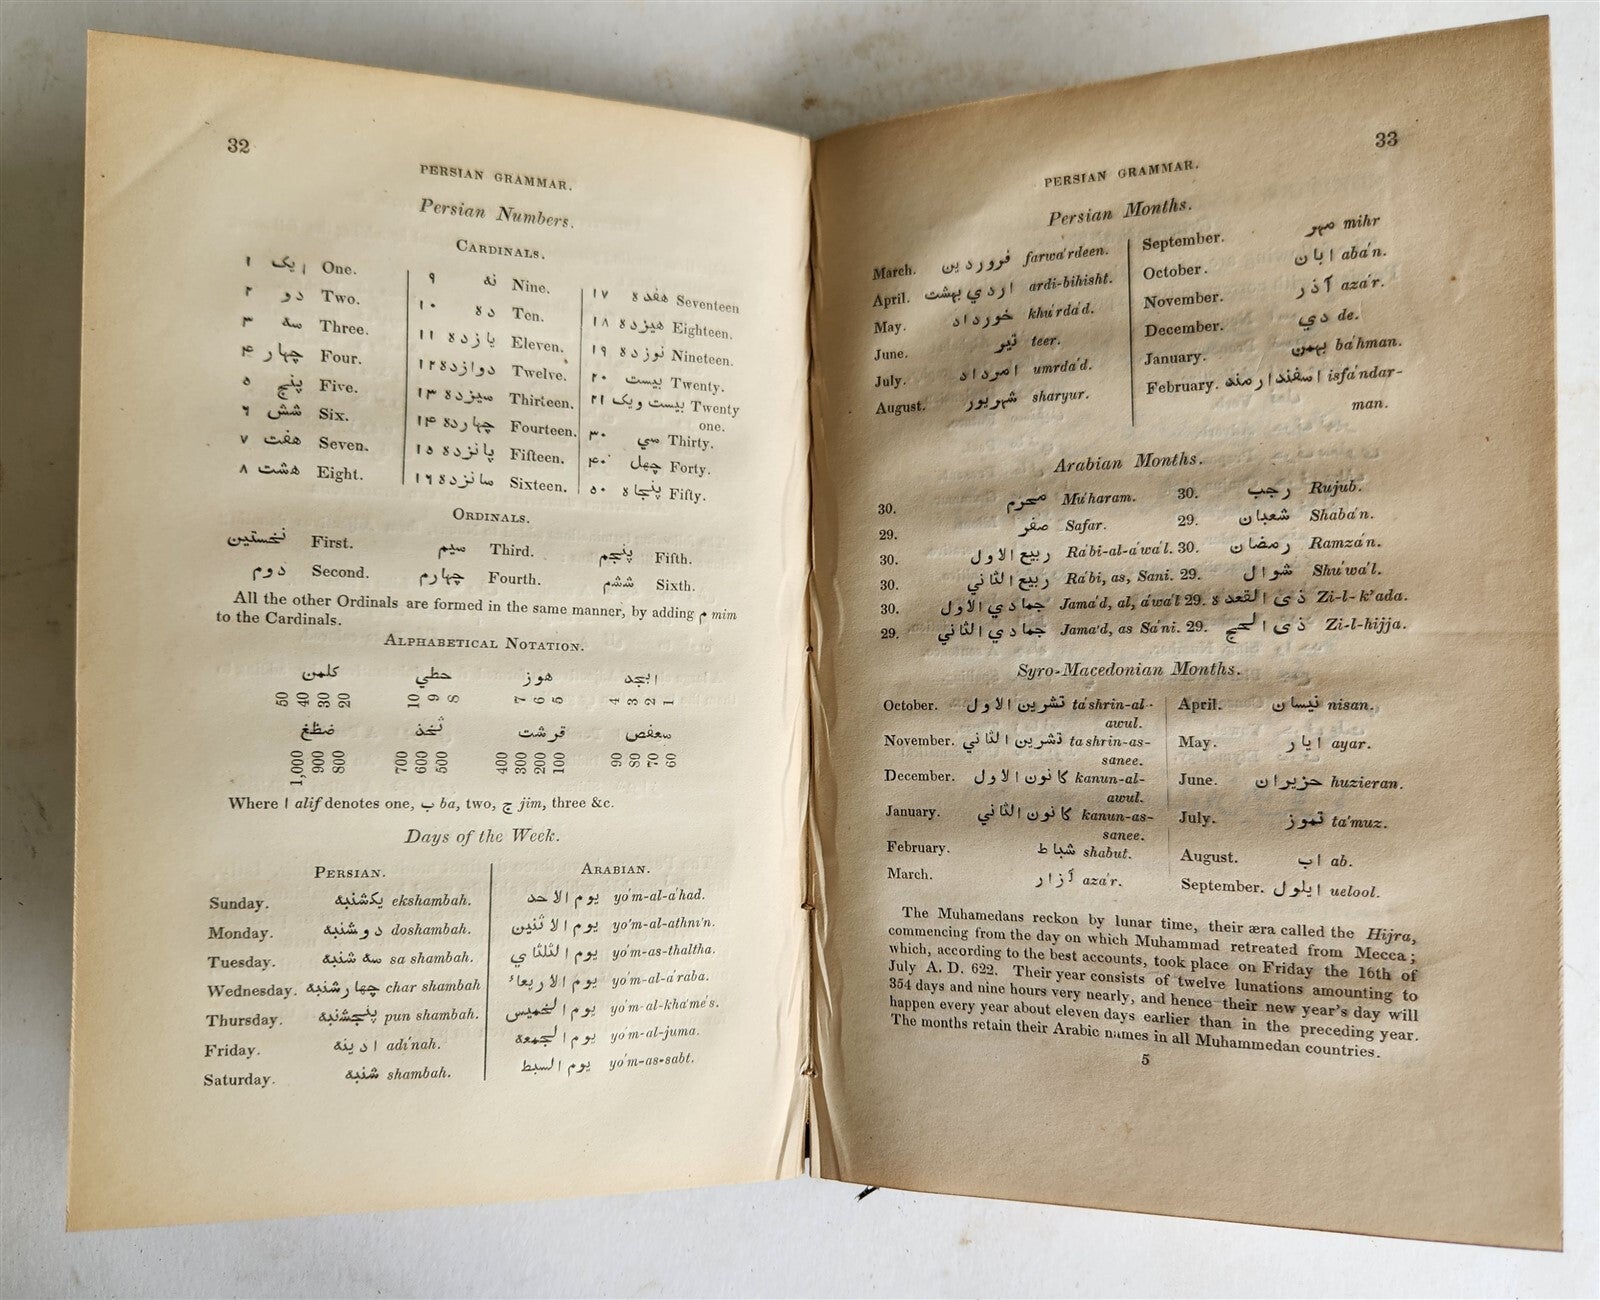 32
PERSIAN GRAMMAR.
Persian Numbers.
CARDINALS.
۱ ایک One.
۲ دو Two.
۳ سه Three.
۴ چهار Four.
۵ پنج Five.
۶ شش Six.
۷ هفت Seven.
۸ هشت Eight.
۹ نه Nine.
۱۰ ده Ten.
۱۱ یازده Eleven.
۱۲ دوازده Twelve.
۱۳ سیزده Thirteen.
۱۴ چهارده Fourteen.
۱۵ پانزده Fifteen.
۱۶ سانزده Sixteen.
۱۷ هفده Seventeen
۱۸ هیزده Eighteen.
۱۹ نوزده Nineteen.
۲۰ بیست Twenty.
۲۱ بیست ویک Twenty
one.
۳۰ سي Thirty.
۴۰ چهل Forty.
۵۰ پنجاه Fifty.
ORDINALS.
نخستین First. سیم Third. پنجم Fifth.
دوم Second. چهارم Fourth. ششم Sixth.
All the other Ordinals are formed in the same manner, by adding م mim
to the Cardinals.
ALPHABETICAL NOTATION.
کلمن حطي هوز ابجد
50 40 30 20 10 9 8 7 6 5 4 3 2 1
ضظغ ثخذ قرشت سعفص
1,000 900 800 700 600 500 400 300 200 100 90 80 70 60
Where ا alif denotes one, ب ba, two, ج jim, three &c.
Days of the Week.
PERSIAN. ARABIAN.
Sunday. یکشنبه ekshambah. یوم الاحد yo'm-al-a'had.
Monday. دوشنبه doshambah. یوم الاثنین yo'm-al-athni'n.
Tuesday. سه شنبه sa shambah. یوم الثلثاي yo'm-as-thaltha.
Wednesday. چهارشنبه char shambah یوم الاربعاء yo'm-al-a'raba.
Thursday. پنجشنبه pun shambah. یوم الخمیس yo'm-al-kha'me's.
Friday. ادینه adi'nah. یوم الجمعه yo'm-al-juma.
Saturday. شنبه shambah. یوم السبط yo'm-as-sabt.
33
PERSIAN GRAMMAR.
Persian Months.
March. فروردین farwa'rdeen.
April. اردي بهشت ardi-bihisht.
May. خورداد khu'rda'd.
June. تیر teer.
July. امرداد umrda'd.
August. شهریور sharyur.
September. مهر mihr
October. ابان aba'n.
November. آذر aza'r.
December. دي de.
January. بهمن ba'hman.
February. اسفندارمند isfa'ndar-
man.
Arabian Months.
30. محرم Mu'haram. 30. رجب Rujub.
29. صفر Safar. 29. شعبان Shaba'n.
30. ربیع الاول Ra'bi-al-a'wa'l. 30. رمضان Ramza'n.
30. ربیع الثاني Ra'bi, as, Sani. 29. شوال Shu'wa'l.
30. جمادي الاول Jama'd, al, a'wa'l 29. ذی القعده Zi-l-k'ada.
29. جمادي الثاني Jama'd, as Sa'ni. 29. ذی الحج Zi-l-hijja.
Syro-Macedonian Months.
October. تشرین الاول ta'shrin-al-
awul.
November. تشرین الثاني tashrin-as-
sanee.
December. کانون الاول kanun-al-
awul.
January. کانون الثاني kanun-as-
sanee.
February. شباط shabut.
March. آزار aza'r.
April. نیسان nisan.
May. ایار ayar.
June. حزیران huzieran.
July. تموز ta'muz.
August. اب ab.
September. ایلول uelool.
The Muhamedans reckon by lunar time, their æra called the Hijra,
commencing from the day on which Muhammad retreated from Mecca;
which, according to the best accounts, took place on Friday the 16th of
July A. D. 622. Their year consists of twelve lunations amounting to
354 days and nine hours very nearly, and hence their new year's day will
happen every year about eleven days earlier than in the preceding year.
The months retain their Arabic names in all Muhammedan countries.
5